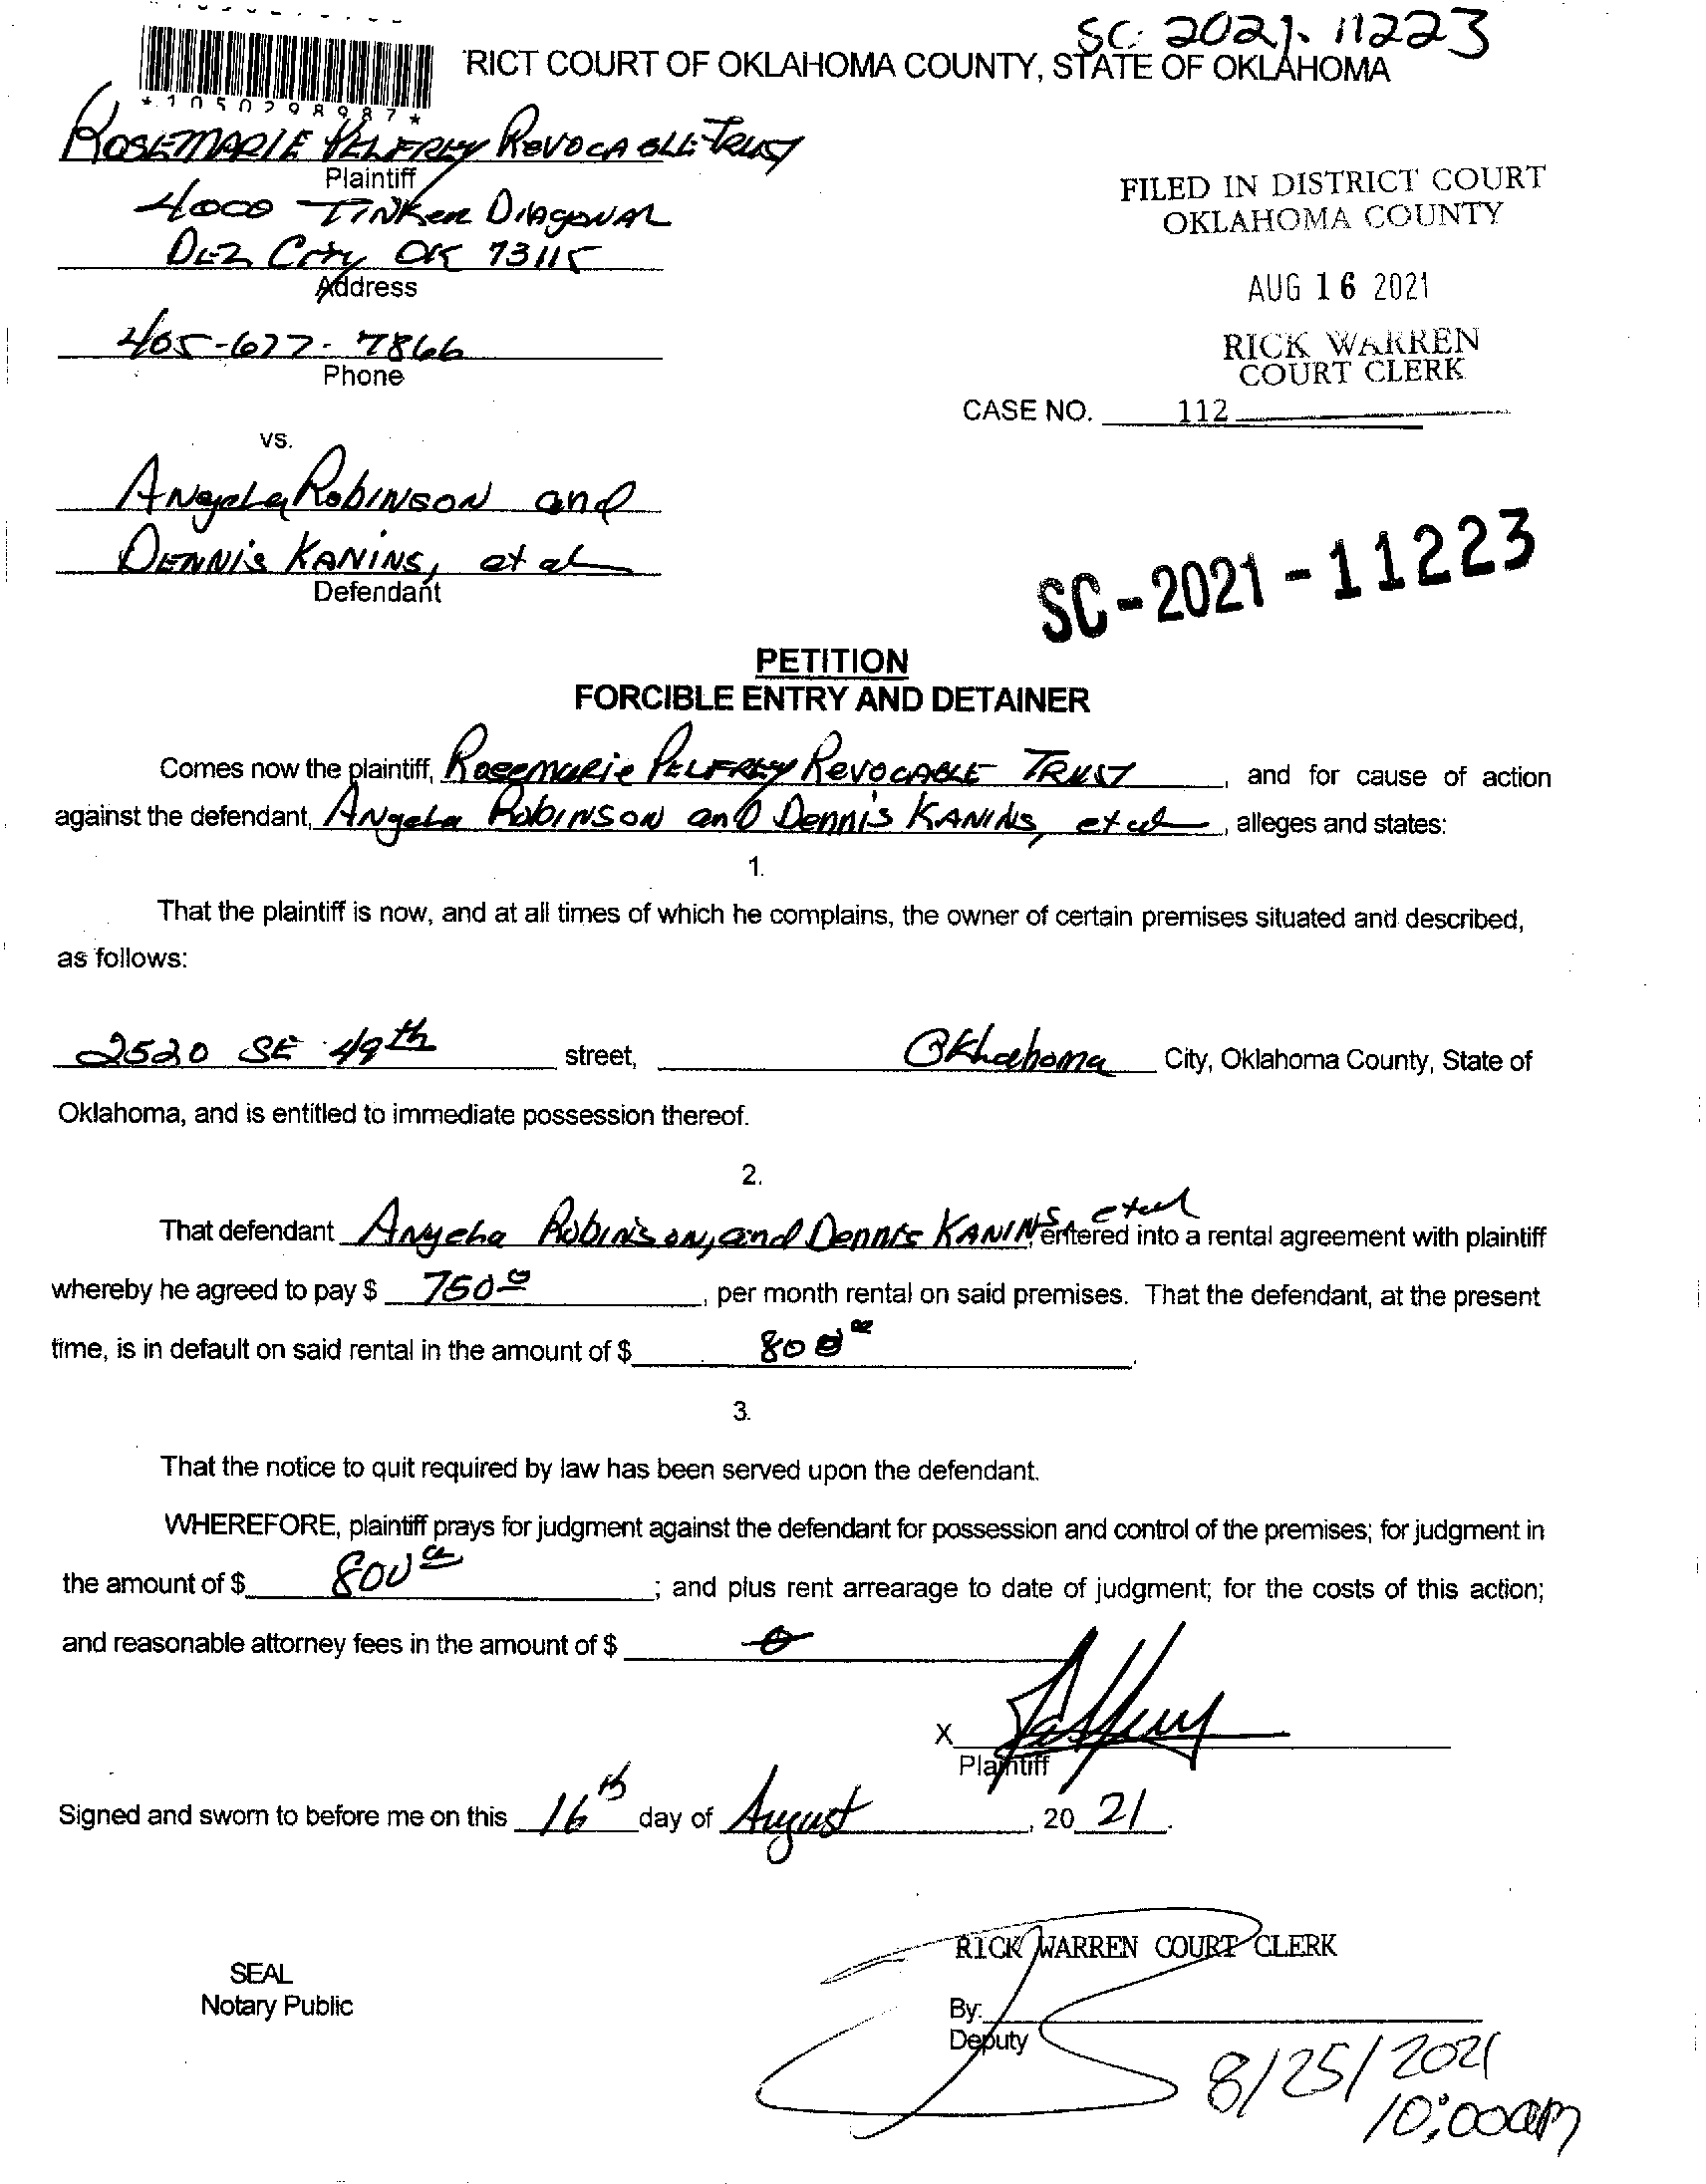 SC-2021-11223
RICT COURT OF OKLAHOMA COUNTY, STATE OF OKLAHOMA
*1050298987*
ROSEMARIE PELFREY REVOCABLE TRUST
Plaintiff
4000 TINKER DIAGONAL
DEL City OK 73115
Address
405-677-7866
Phone
FILED IN DISTRICT COURT
OKLAHOMA COUNTY
AUG 16 2021
RICK WARREN
COURT CLERK
CASE NO. 112
vs.
Angela Robinson and
Dennis KANINS, et al
Defendant
SC-2021-11223
PETITION
FORCIBLE ENTRY AND DETAINER
Comes now the plaintiff, Rosemarie PELFREY REVOCABLE TRUST, and for cause of action
against the defendant, Angela Robinson and Dennis KANINS, et al, alleges and states:
1.
That the plaintiff is now, and at all times of which he complains, the owner of certain premises situated and described,
as follows:
2520 SE 49th street, Oklahoma City, Oklahoma County, State of
Oklahoma, and is entitled to immediate possession thereof.
2.
That defendant Angela Robinson, and Dennis KANINS, et al entered into a rental agreement with plaintiff
whereby he agreed to pay $ 750.00, per month rental on said premises. That the defendant, at the present
time, is in default on said rental in the amount of $ 800.00.
3.
That the notice to quit required by law has been served upon the defendant.
WHEREFORE, plaintiff prays for judgment against the defendant for possession and control of the premises; for judgment in
the amount of $ 800.00; and plus rent arrearage to date of judgment; for the costs of this action;
and reasonable attorney fees in the amount of $ 0
X
Plaintiff
Signed and sworn to before me on this 16th day of August, 20 21.
RICK WARREN COURT CLERK
SEAL
Notary Public
By:
Deputy
8/25/2021
10:00am